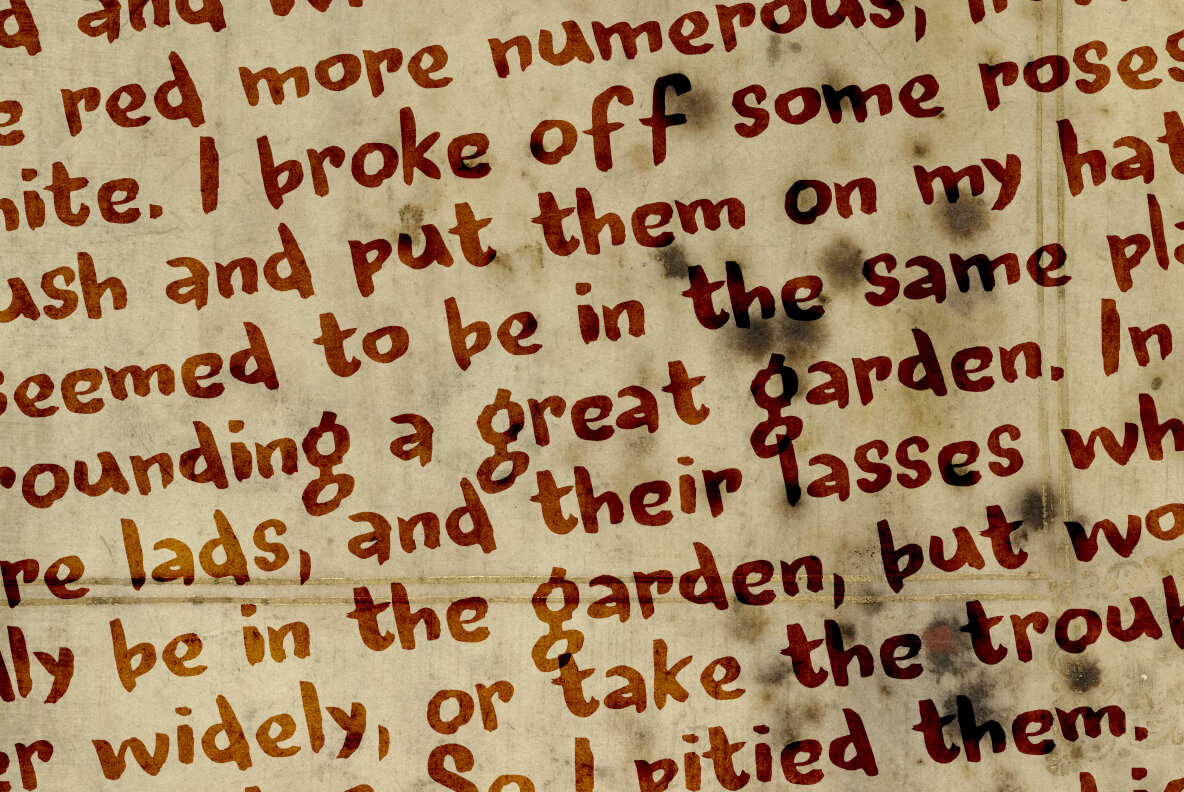 d and
e red more numerous,
hite. I broke off some roses
ush and put them on my hat
seemed to be in the same pla
rounding a great garden. In
re lads, and their lasses wh
lly be in the garden, but wo
er widely, or take the troub
So I pitied them.